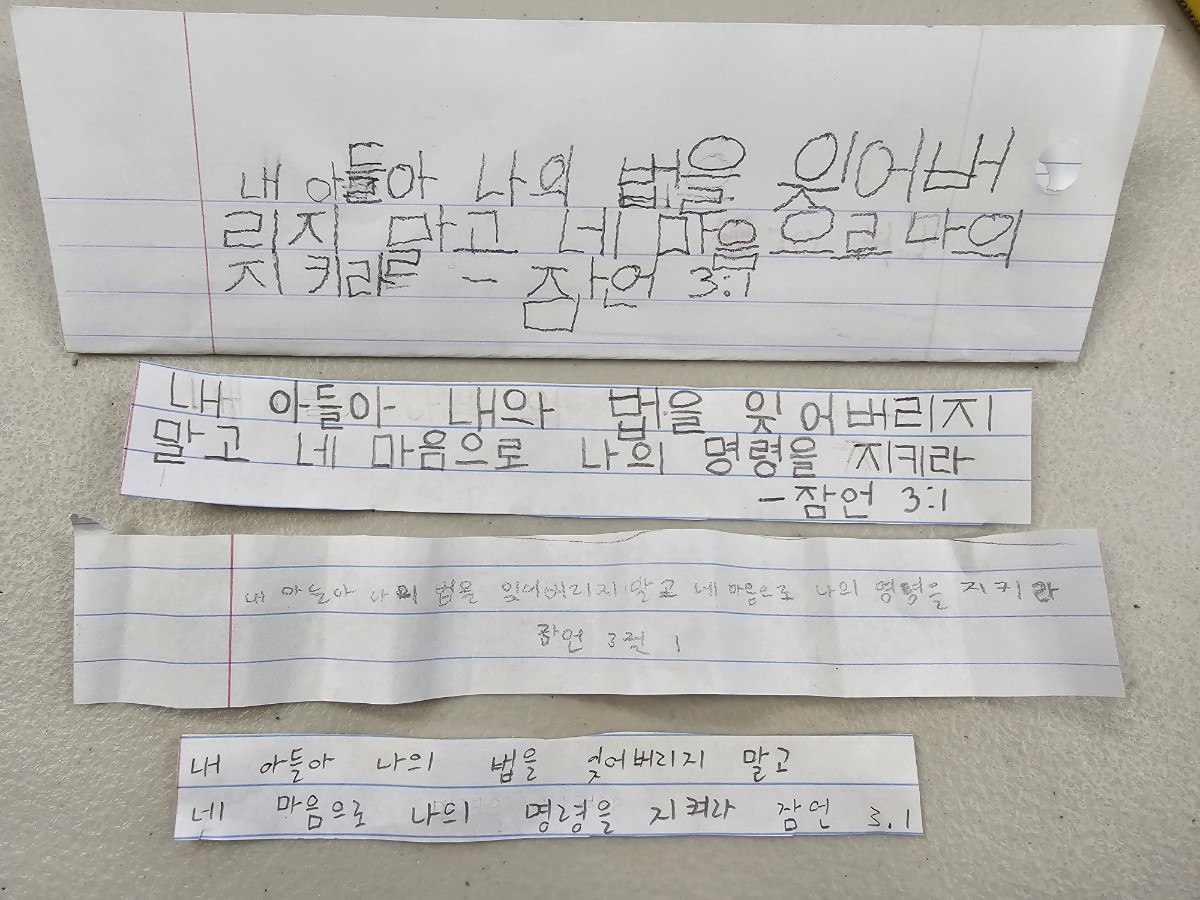 내 아들아 나의 법을 잊어버
리지 말고 네 마음으로 나의
지키라 - 잠언 3:1
내 아들아 내와 법을 잊어버리지
말고 네 마음으로 나의 명령을 지키라
- 잠언 3:1
내 아들아 나의 법을 잊어버리지 말고 네 마음으로 나의 명령을 지키라
잠언 3절 1
내 아들아 나의 법을 잊어버리지 말고
네 마음으로 나의 명령을 지켜라 잠언 3.1